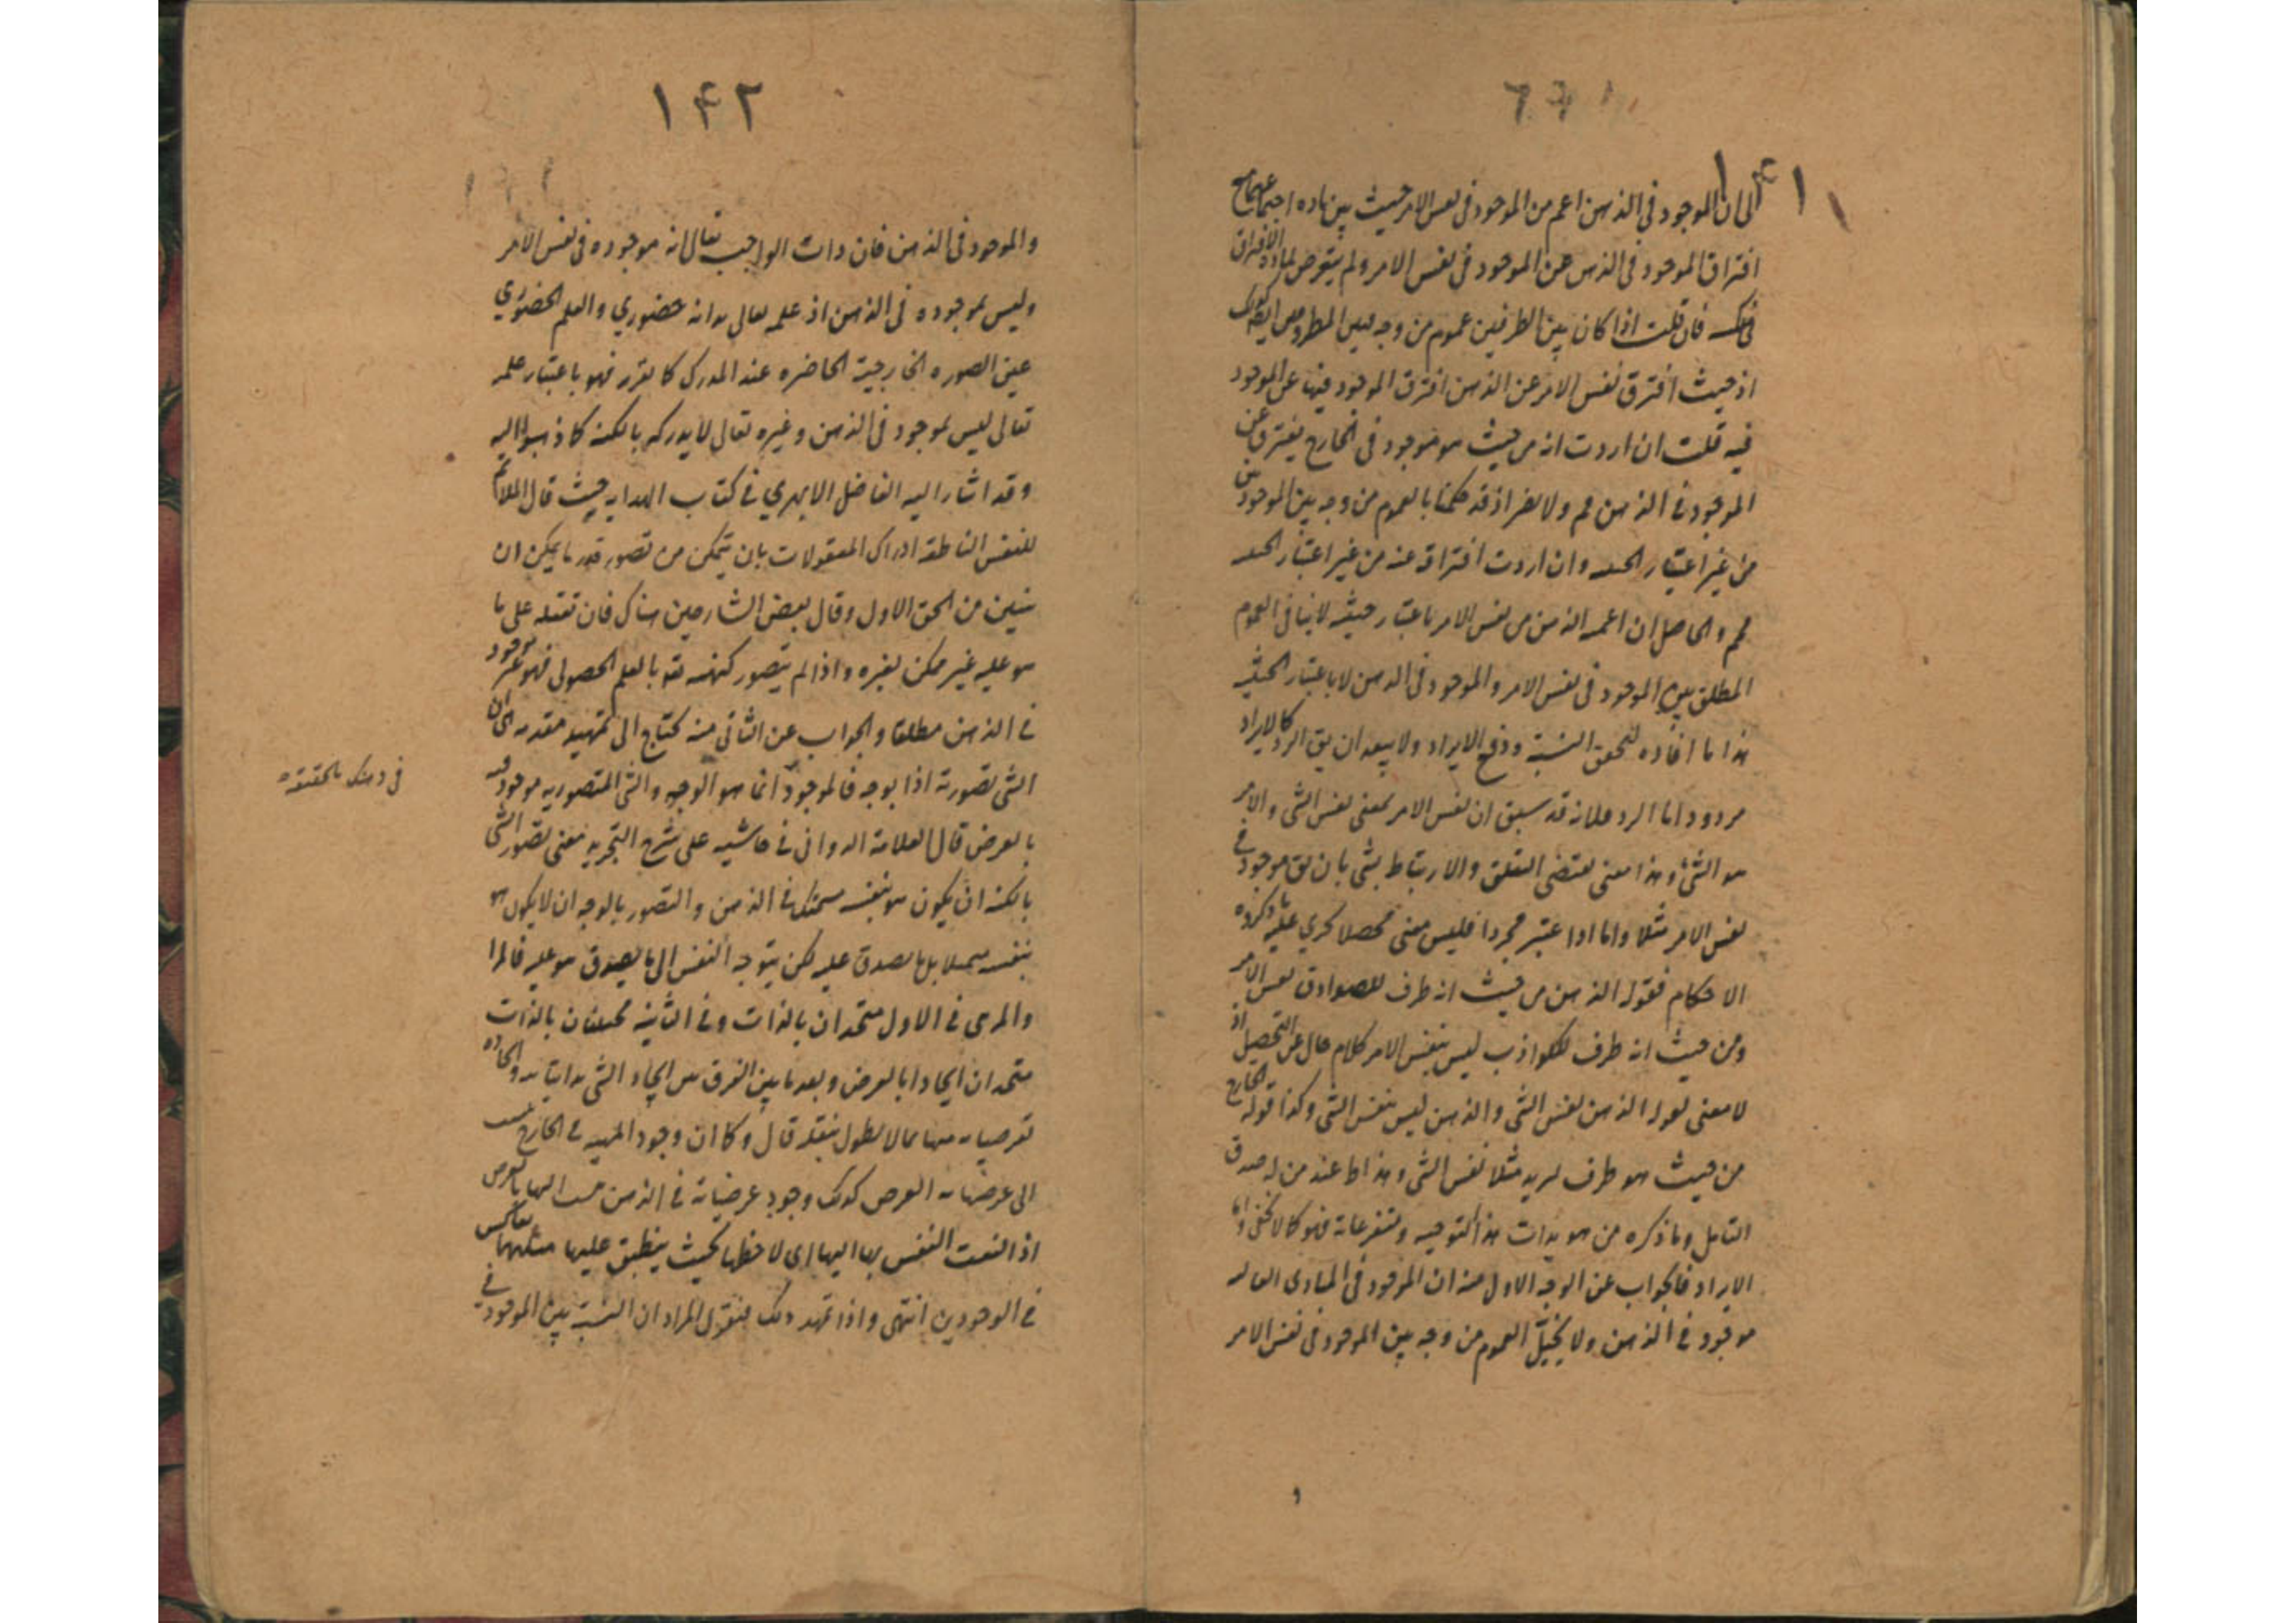 ١٤١
الى ان الموجود في الذهن اعم من الموجود في نفس الامر حيث بين مادة اجتماعهما مع
افتراق الموجود في الذهن عن الموجود في نفس الامر ولم يتعرض لمادة الافتراق
فان قلت اذا كان بين الطرفين عموم من وجه فبين المظروفين ايضا كذلك
اذ حيث افترق نفس الامر عن الذهن افترق الموجود فيها عن الموجود
فيه قلت ان اردت انه من حيث هو موجود في الخارج يفترق عن
الموجود في الذهن مم ولا يضر اذ قد حكمنا بالعموم من وجه بين الموجودين
من غير اعتبار الحيثية وان اردت افتراقه عنه من غير اعتبار الحيثية
مم والحاصل ان اعمية الذهن من نفس الامر باعتبار حيثية لا ينافي العموم
المطلق بين الموجود في نفس الامر والموجود في الذهن لا باعتبار الحيثية
هذا ما افاده لتحقق النسبة ودفع الايراد ولا يبعد ان يق الرد كالايراد
مردود اما الرد فلانه قد سبق ان نفس الامر بمعنى نفس الشئ والامر
هو الشئ وهذا معنى يقتضي التعلق والارتباط بشئ بان يق موجود في
نفس الامر مثلا واما اذا اعتبر مجردا فليس معنى محصلا يجري عليه ما ذكره
الاحكام فقوله الذهن من حيث انه ظرف للصوادق نفس الامر
ومن حيث انه ظرف للكواذب ليس بنفس الامر كلام خال عن التحصيل اذ
لا معنى لقوله الذهن نفس الشئ والذهن ليس بنفس الشئ وكذا قوله الخارج
من حيث هو ظرف لزيد مثلا نفس الشئ وهذا ظ عند من له صدق
التامل وما ذكره من مويدات هذا التوجيه ومتفرعاته فهو كما لا يخفى واما
الايراد فالجواب عن الوجه الاول منه ان الموجود في المبادى العالية
موجود في الذهن ولا يخيل العموم من وجه بين الموجود في نفس الامر
١٤٢
والموجود في الذهن فان ذات الواجب تعالى انه موجوده في نفس الامر
وليس بموجوده في الذهن اذ علمه تعالى بذاته حضوري والعلم الحضوري
عين الصورة الخارجية الحاضرة عند المدرك كما تقرر فهو باعتبار علمه
تعالى ليس بموجود في الذهن وغيره تعالى لا يدركه بالكنه كما ذهبوا اليه
وقد اشار اليه الفاضل الابهري في كتاب الهداية حيث قال الملائم
للنفس الناطقة ادراك المعقولات بان يتمكن من تصور قدر ما يمكن ان
يتبين من الحق الاول وقال بعض الشارحين هناك فان تعقله على ما
هو عليه غير ممكن لغيره واذا لم يتصور كنهه تع بالعلم الحصولى فهو غير موجود
في الذهن مطلقا والجواب عن الثاني منه يحتاج الى تمهيد مقدمه هى ان
الشئ تصورته اذا بوجه فالموجود انما هو الوجه والشئ المتصور به موجود فيه
بالعرض قال العلامة الدواني في حاشيه على شرح التجريد معنى تصور الشئ
بالكنه ان يكون هو بنفسه متمثلا في الذهن والتصور بالوجه ان لا يكون هو
بنفسه متمثلا بل ما يصدق عليه لكن يتوجه النفس الى ما يصدق هو عليه فالمرا
والمرئى في الاول متحدان بالذات وفي الثانية مختلفان بالذات
متحدان اتحادا بالعرض وبعد ما بين الفرق بين اتحاد الشئ بذاتياته واتحاده
بعرضياته مما لا يطول بنقله قال وكما ان وجود المهية في الخارج ينسب
الى عرضياته بالعرض كذلك وجود عرضياته في الذهن ينسب اليها بالعرض
اذ التفت النفس بها اليها اى لاحظها بحيث ينطبق عليها
في الوجودين انتهى واذا تمهد ذلك فنقول المراد ان النسبة بين الموجود في